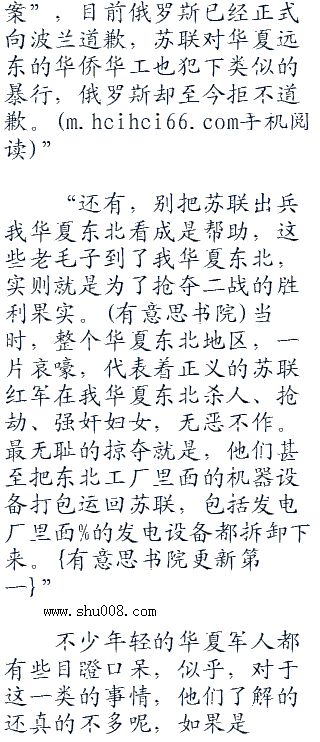 案”，目前俄罗斯已经正式
向波兰道歉，苏联对华夏远
东的华侨华工也犯下类似的
暴行，俄罗斯却至今拒不道
歉。(m.hcihci66.com手机阅
读)”
“还有，别把苏联出兵
我华夏东北看成是帮助，这
些老毛子到了我华夏东北，
实则就是为了抢夺二战的胜
利果实。(有意思书院)当
时，整个华夏东北地区，一
片哀嚎，代表着正义的苏联
红军在我华夏东北杀人、抢
劫、强奸妇女，无恶不作。
最无耻的掠夺就是，他们甚
至把东北工厂里面的机器设
备打包运回苏联，包括发电
厂里面%的发电设备都拆卸下
来。{有意思书院更新第
一}”
www.shu008.com
不少年轻的华夏军人都
有些目瞪口呆，似乎，对于
这一类的事情，他们了解的
还真的不多呢，如果是